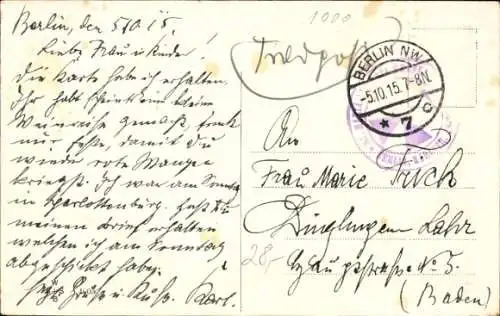 Berlin, den 5/10 15.
Liebe Frau u Kinder!
Die Karte habe ich erhalten.
Ihr habt scheint eine kleine
Weinreise gemacht,
nur feste, damit du
wieder rote Wangen
kriegst. Ich war am Sonntag
in Charlottenburg. Hast Du
meinen Brief erhalten
welchen ich am Sonntag
abgeschickt habe.
Gruß u. Kuß. Karl.
1000
Feldpost
BERLIN NW
-5.10.15. 7-8N.
* 7 c
An
Frau Marie Frick
Dinglingen Lahr
Hauptstrasse No 5.
(Baden)
28,-